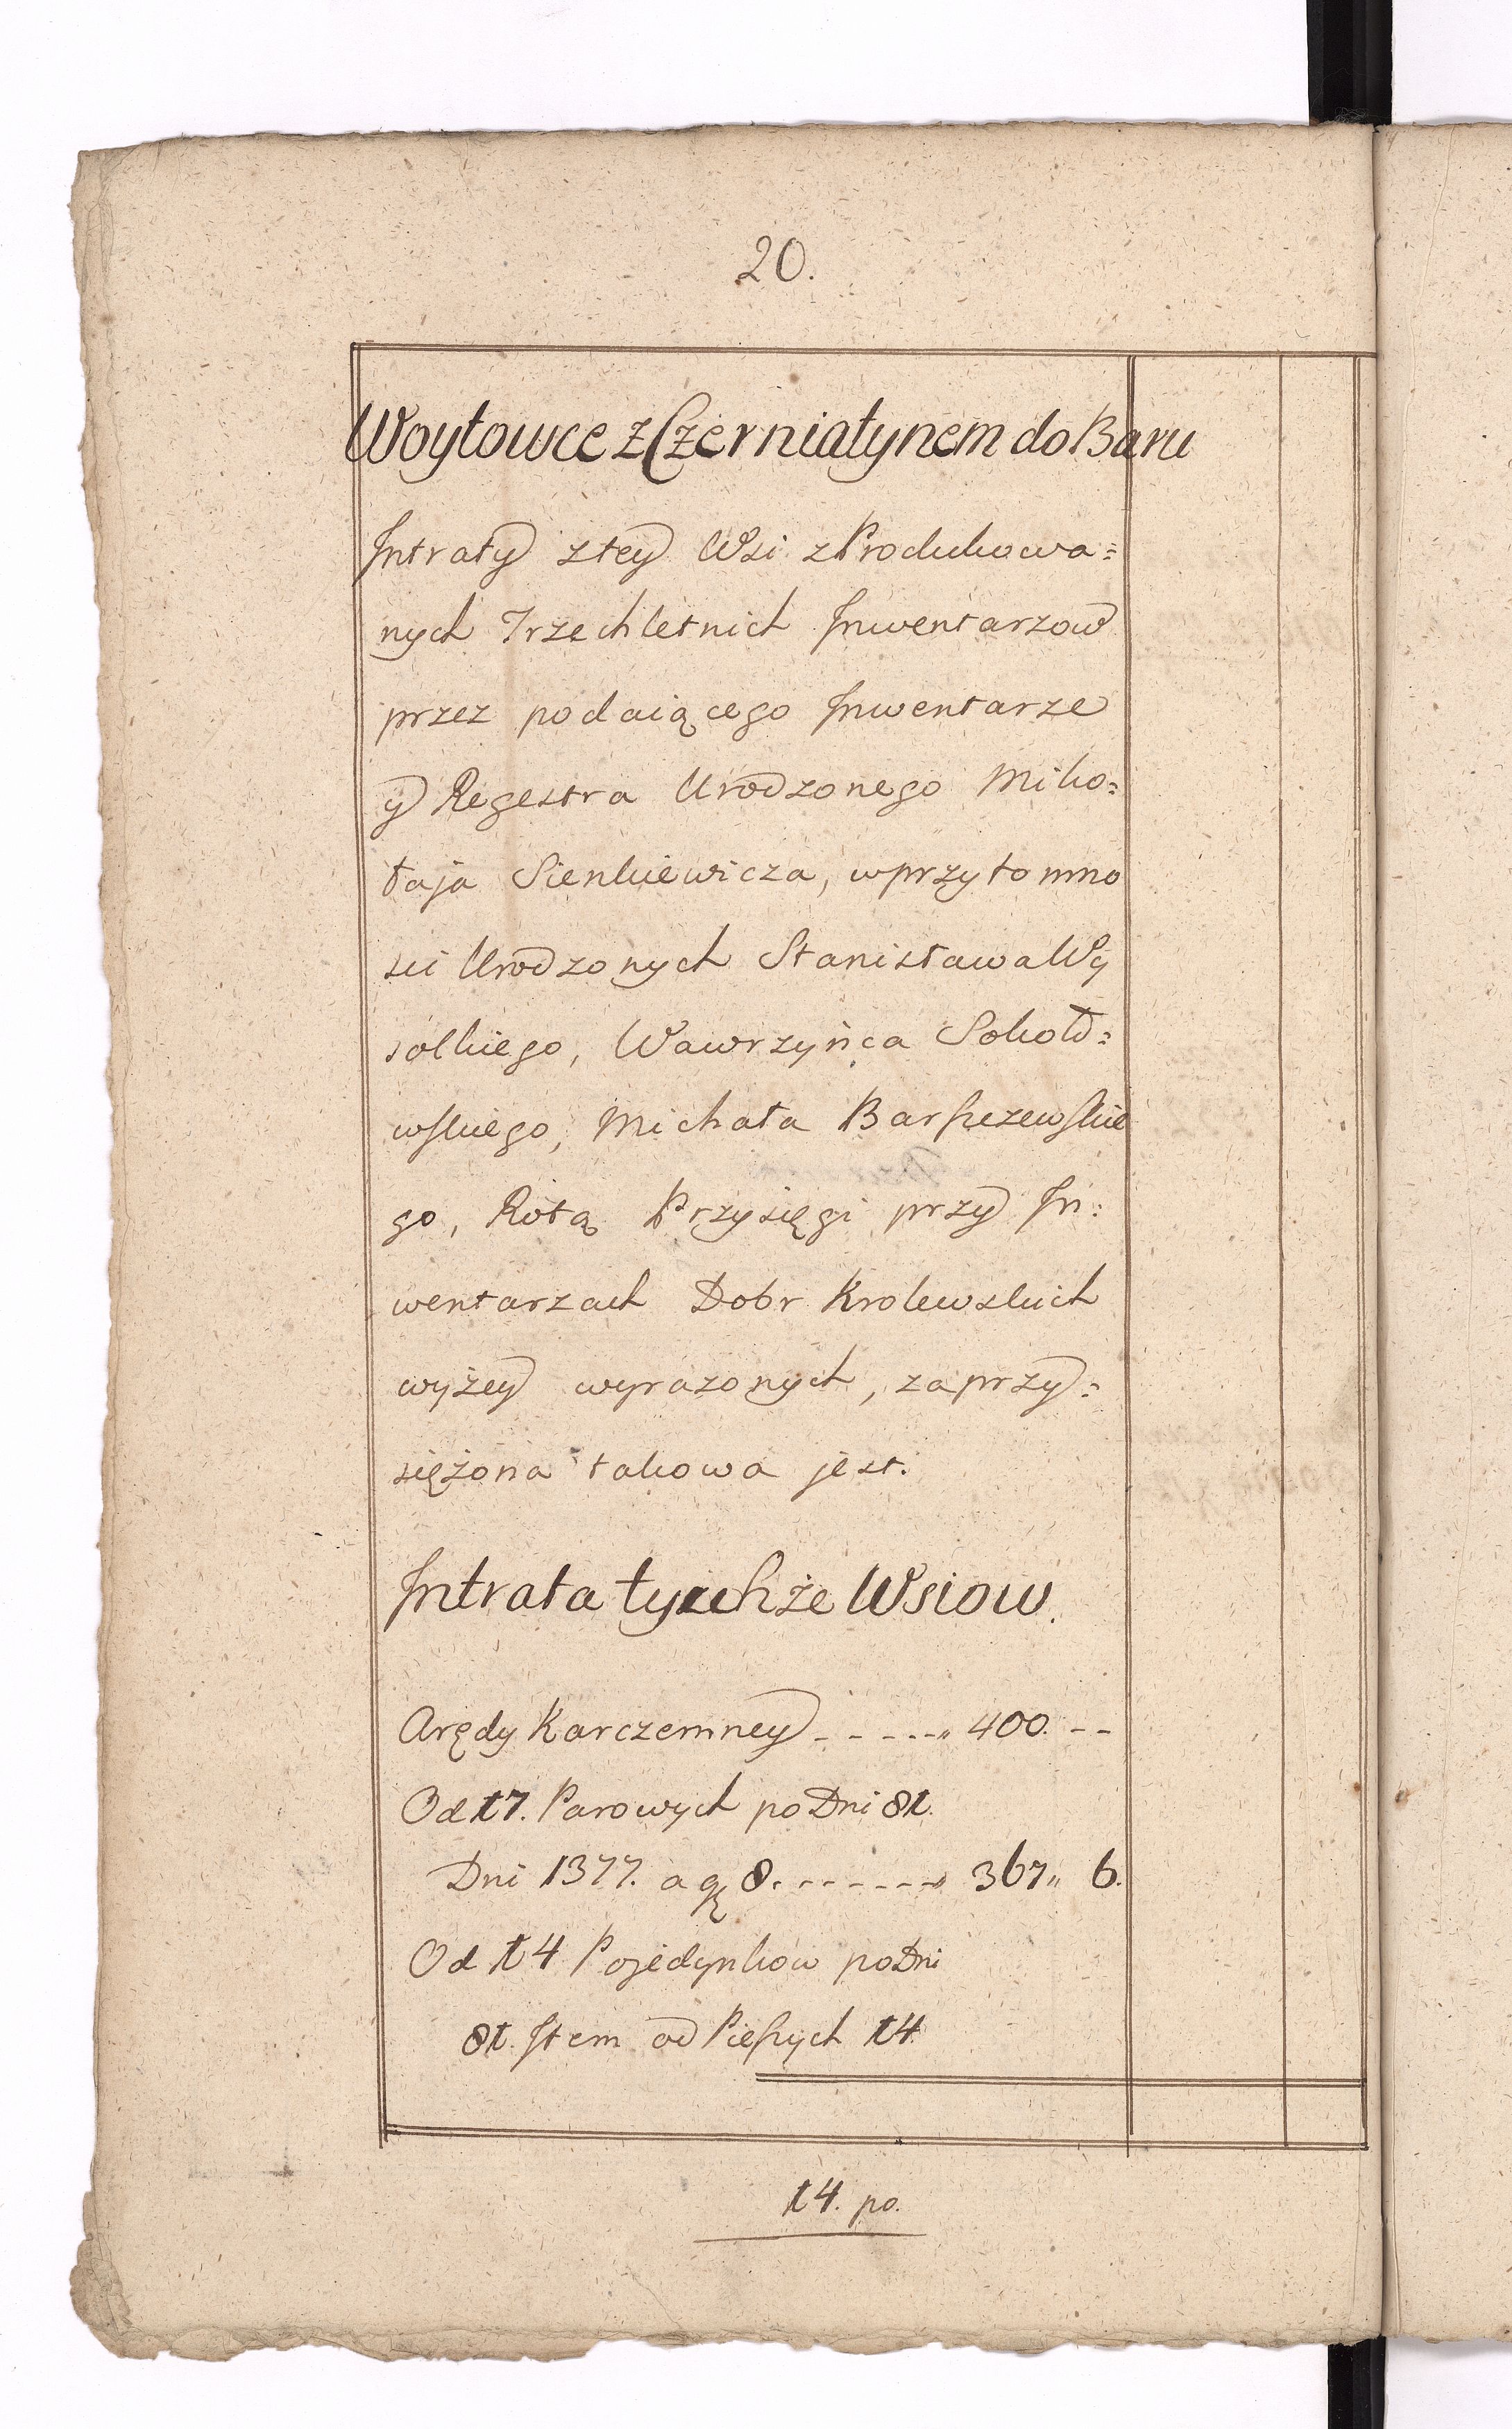 20.
Woytowce z Czerniatynem do Baru
Intraty z tey Wsi z Produkowa=
nych Trzechletnich Inwentarzow
przez podaiącego Inwentarze
y Regestra Urodzonego Miko=
łaja Sienkiewicza, w przytomno
sci Urodzonych Stanisława Wy
sockiego, Wawrzyńca Sokoło=
wskiego, Michała Barszczewskie
go, Rotą Przysięgi przy In=
wentarzach Dobr Krolewskich
wyżey wyrazonych, zaprzy=
siężona takowa jest.
Intrata tychże Wsiow.
Arędy Karczemney - - - - - „ 400. - -
Od 17. Parowych po Dni 81.
Dni 1377. a gę 8. - - - - - - - „ 367 „ 6.
Od 14 Pojedynkow po Dni
81. Item od Pieszych 14.
14. po.